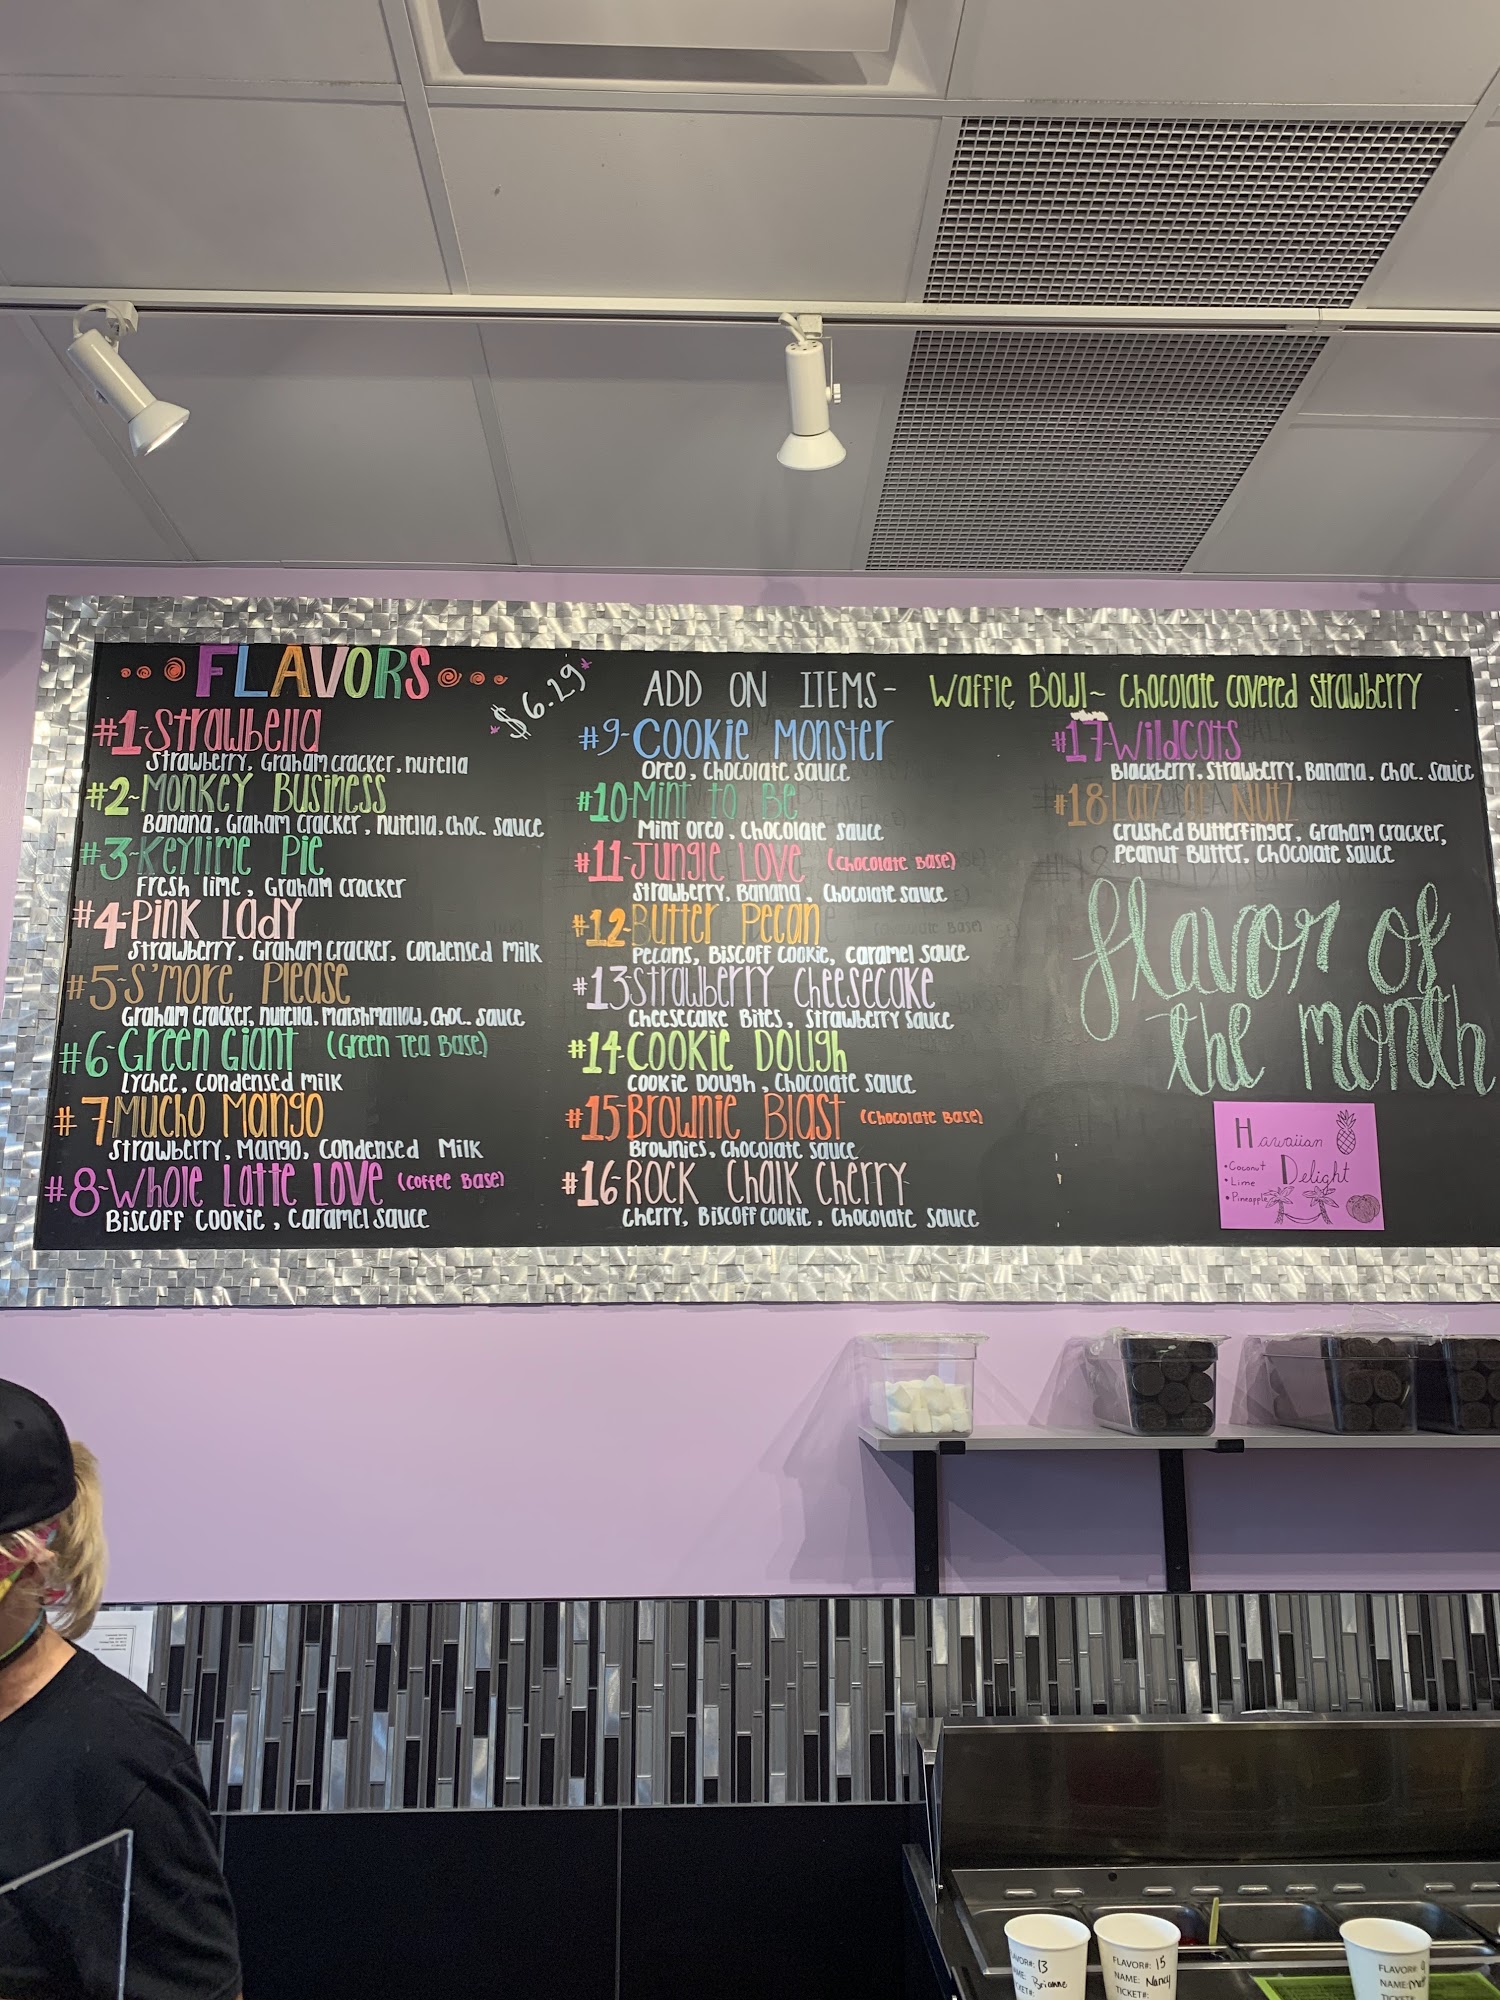 FLAVORS
$6.29
#1~Strawbella
Strawberry, Graham cracker, nutella
#2~Monkey Business
Banana, Graham cracker, nutella, choc. sauce
#3~Keylime Pie
Fresh lime, Graham cracker
#4~Pink Lady
Strawberry, Graham cracker, condensed milk
#5~S'more Please
Graham cracker, nutella, marshmallow, choc. sauce
#6~Green Giant (Green Tea Base)
Lychee, condensed milk
#7~Mucho Mango
Strawberry, Mango, condensed milk
#8~Whole Latte Love (coffee Base)
Biscoff cookie, caramel sauce
ADD ON ITEMS- Waffle Bowl~ Chocolate covered strawberry
#9~Cookie Monster
Oreo, chocolate sauce
#10~Mint to Be
Mint oreo, chocolate sauce
#11~Jungle Love (chocolate Base)
Strawberry, Banana, chocolate sauce
#12~Butter Pecan
Pecans, Biscoff cookie, caramel sauce
#13~Strawberry Cheesecake
Cheesecake Bites, Strawberry sauce
#14~Cookie Dough
Cookie Dough, chocolate sauce
#15~Brownie Blast (chocolate Base)
Brownies, chocolate sauce
#16~Rock Chalk Cherry
Cherry, Biscoff cookie, chocolate sauce
#17~Wildcats
Blackberry, strawberry, Banana, choc. sauce
#18~Lotz of Nutz
Crushed Butterfinger, Graham cracker,
Peanut Butter, chocolate sauce
flavor of
the month
Hawaiian
Delight
• Coconut
• Lime
• Pineapple
FLAVOR#: 13
NAME: Brianne
TICKET#:
FLAVOR#: 15
NAME: Nancy
TICKET#:
FLAVOR#:
NAME: Matt
TICKET#: